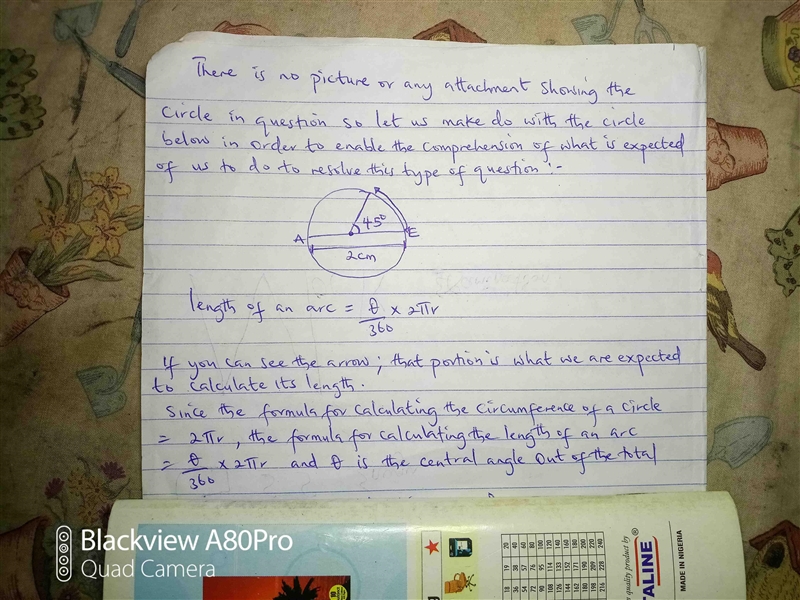 There is no picture or any attachment showing the
circle in question so let us make do with the circle
below in order to enable the comprehension of what is expected
of us to do to resolve this type of question:-
45°
A
E
2cm
length of an arc = θ/360 × 2πr
If you can see the arrow; that portion is what we are expected
to calculate its length.
Since the formula for calculating the circumference of a circle
= 2πr, the formula for calculating the length of an arc
= θ/360 × 2πr and θ is the central angle out of the total
Blackview A80Pro
Quad Camera
quality product by
TALINE®
MADE IN NIGERIA